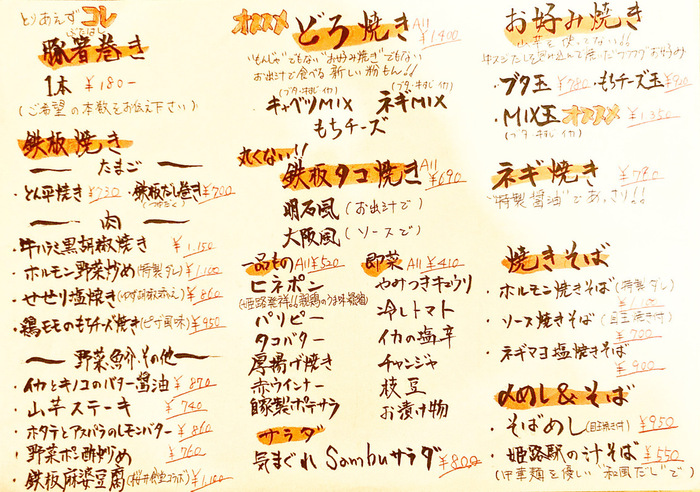 とりあえずコレ
ぶたはし
豚箸巻き
1本 ¥180-
(ご希望の本数をお伝え下さい)
鉄板焼き
たまご
・とん平焼き ¥730 ・鉄板だし巻き ¥700
肉
・牛ハラミ黒胡椒焼き ¥1,150
・ホルモン野菜炒め(特製ダレ) ¥1,100
・せせり塩焼き(ゆず胡椒添え) ¥860
・鶏モモのもちチーズ焼き(ピザ風味) ¥950
野菜、魚介、その他
・イカとキノコのバター醤油 ¥870
・山芋ステーキ ¥740
・ホタテとアスパラのレモンバター ¥860
・野菜ポン酢炒め ¥760
・鉄板麻婆豆腐 ¥1,100
オススメ どろ焼き All ¥1400
"もんじゃ"でもない"お好み焼き"でもない
お出汁で食べる新しい粉もん!!
(ブタ・牛すじ・イカ) (ブタ・牛すじ・イカ)
キャベツMIX ネギMIX
もちチーズ
丸くない!!
鉄板タコ焼き All ¥690
明石風(お出汁で)
大阪風(ソースで)
一品もの All ¥520
ヒネポン
パリピー
タコバター
厚揚げ焼き
赤ウインナー
自家製ポテサラ
即菜 All ¥410
やみつきキュウリ
冷しトマト
イカの塩辛
チャンジャ
枝豆
お漬け物
サラダ
気まぐれSambuサラダ ¥800
お好み焼き
山芋を使ってない!!
牛スジだしを染み込んで焼いたフワフワお好み
・ブタ玉 ¥780 ・もちチーズ玉 ¥900
・MIX玉 オススメ ¥1,350
(ブタ・牛すじ・イカ)
ネギ焼き ¥780
"特製醤油"であっさり!!
焼きそば
・ホルモン焼きそば(特製ダレ)
¥1,100
・ソース焼きそば(目玉焼き付)
¥900
・ネギマヨ塩焼きそば
¥900
〆めし&そば
・そばめし(目玉焼き付) ¥950
・姫路駅の汁そば ¥550
(中華麺を優しい"和風だし"で)